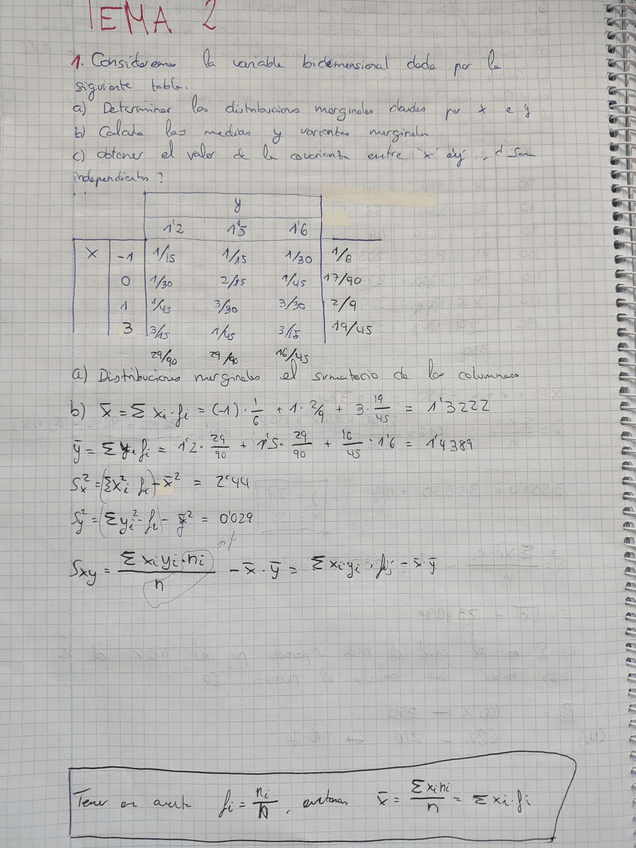 TEMA 2
1. Consideremos la variable bidimensional dada por la
siguiente tabla.
a) Determinar las distribuciones marginales dadas por x e y
b) Calcula las medias y varianzas marginales
c) obtener el valor de la covarianza entre x e y, ¿ son
independientes?
y
1'2 1'5 1'6
X -1 1/15 1/15 1/30 1/6
0 1/30 2/15 1/45 17/90
1 1/45 3/30 3/30 2/9
3 3/15 1/45 3/15 19/45
29/90 29/90 16/45
a) Distribuciones marginales el sumatorio de las columnas
b) x̄ = Σ xi·fi = (-1)·1/6 + 1·2/9 + 3·19/45 = 1'3222
ȳ = Σ yi fi = 1'2·29/90 + 1'5·29/90 + 16/45·1'6 = 1'4389
Sx² = (Σxi² fi) - x̄² = 2'44
Sy² = (Σyi²·fi) - ȳ² = 0'029
Sxy = Σ xi yi·ni / n - x̄·ȳ = Σ xi·yi·fij - x̄·ȳ
Tener en cuenta fi = ni/N, entonces x̄ = Σ xi ni / n = Σ xi·fi